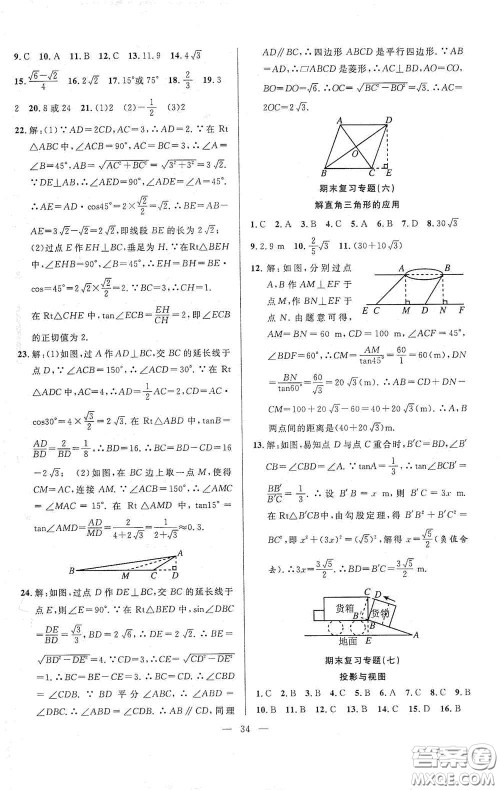 9. C 10. A 11. B 12. A 13. 11.9 14. 4√3
15. (√6-√2)/4 16. 2√2 17. 15°或75° 18. 2/3 19. 3
2 20. 8或24 21. (1)2 (2)-1/2 (3)2
22. 解:(1)∵AD=2CD,AC=3,∴AD=2. ∵在Rt
△ABC中,∠ACB=90°,AC=BC=3,∴∠A=
∠B=45°,AB=√(AC²+BC²)=√(3²+3²)=3√2.
∵DE⊥AB,∴∠AED=90°,∠ADE=∠A=45°,
∴AE=AD·cos45°=2×√2/2=√2,∴BE=AB-
AE=3√2-√2=2√2,即线段BE的长为2√2;
(2)过点E作EH⊥BC,垂足为H. ∵在Rt
△BEH中,∠EHB=90°,∠B=45°,∴EH=BH=EB·
cos45°=2√2×√2/2=2. ∵BC=3,∴CH=1. ∴
在Rt△CHE中,tan∠ECB=EH/CH=2,即∠ECB
的正切值为2.
23. 解:(1)如图,过A作AD⊥BC,交BC的延长线于
点D,∵∠ACB=150°,∴∠ACD=30°. ∵在Rt
△ADC中,AC=4,∴AD=1/2 AC=2,CD=AC·
cos30°=4×√3/2=2√3. ∵在Rt△ABD中,tanB=
AD/BD=2/BD=1/8,∴BD=16. ∴BC=BD-CD=16
-2√3; (2)如图,在BC边上取一点M,使得
CM=AC,连接AM. ∵∠ACB=150°,∴∠AMC=
∠MAC=15°. ∵在Rt△AMD中,tan15°=
tan∠AMD=AD/MD=2/(4+2√3)=1/(2+√3)≈0.3.
A
B M C D
24. 解:如图,过点D作DE⊥BC,交BC的延长线于
点E,则∠E=90°. ∵在Rt△DBE中,sin∠DBC=
DE/BD=√3/3,BD=2√6,∴DE=2√2. ∴BE=
√(BD²-DE²)=4. ∵CD=3,∴CE=
√(CD²-DE²)=1. ∴BC=3. ∴BC=CD. ∴∠CBD=
∠CDB. ∵BD平分∠ABC,∴∠ABD=
∠DBC. ∴∠ABD=∠CDB. ∴AB∥CD,同理
AD∥BC,∴四边形ABCD是平行四边形. ∵AB
=AD,∴▱ABCD是菱形,∴AC⊥BD,AO=CO,
BO=DO=√6,∴OC=√(BC²-BO²)=√3. ∴
AC=2OC=2√3.
A D
O
B C E
期末复习专题(六)
解直角三角形的应用
1. C 2. A 3. D 4. B 5. A 6. C 7. D 8. 30√3
9. 2.9 m 10. 2/5√3 11. (30+10√3)
12. 解:如图,分别过点
A,B作AM⊥EF于
点M,作BN⊥EF于
点N. 由题意可得,
A B
E C M D N F
AM=BN=60 m,CD=100 m,∠ACF=45°,
∠BDF=60°. ∴CM=AM/tan45°=60/1=60(m),DN=
BN/tan60°=60/√3=20√3(m). ∴AB=CD+DN-
CM=100+20√3-60=(40+20√3)(m). ∴A,B
两点间的距离是(40+20√3)m.
13. 解:如图,易知点D与点C重合时,B′C=BD,
∠B′CB=∠CBD=∠A. ∵tanA=1/3. ∴tan∠BCB′=
BB′/B′C=1/3. ∴设B′B=x m,则B′C=3x m,
∵在Rt△B′CB中,由勾股定理,得B′B²+B′C²=
BC²,即x²+(3x)²=(√5)². ∴x=√2/2(负值舍
去),∴B′C=3√2/2 m. ∴BD=3√2/2 m.
货箱 货箱
地面
期末复习专题(七)
投影与视图
1. C 2. B 3. A 4. A 5. D 6. B 7. B 8. C 9. B
10. B 11. B 12. A 13. A 14. D 15. A 16. B
— 34 —
答案圈
MXQE.COM